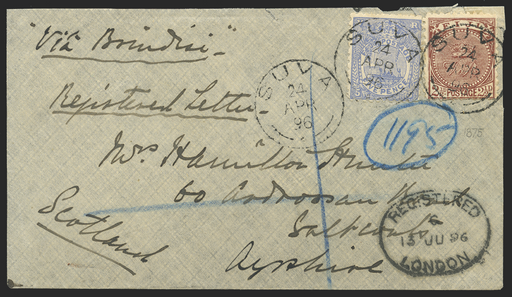 "Via Brindisi"
SUVA
24
APR
96
SUVA
24
APR
96
PENCE
SUVA
24
APR
2½ POSTAGE 2½
Registered Letter
1195
1875
Mrs Hamilton
60 Ardrossan
Saltcoats
Ayrshire
Scotland
REGISTERED
13 JU 96
LONDON